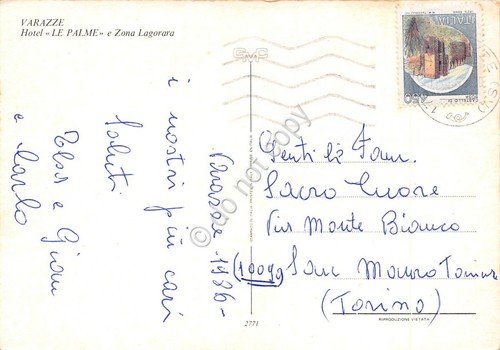 VARAZZE
Hotel «LE PALME» e Zona Lagorara
Varazze 1986-
i nostri più cari
saluti
e Gian
e Carlo
ITALIA
450
CASTELLO DI
Gentilè Fam.
Sacro Cuore
Via Monte Bianco
(10099 San Mauro Torinese
(Torino)
RIPRODUZIONE VIETATA
2771
do not copy